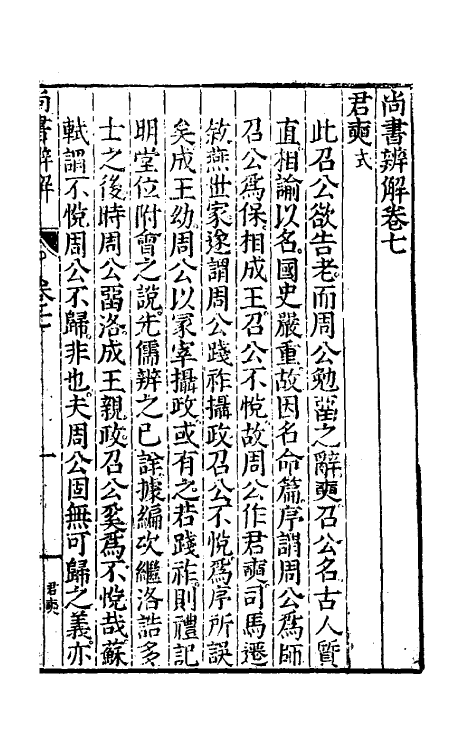 尚書辨解卷七
君奭 式
此召公欲告老而周公勉畱之辭奭召公名古人質
直相諭以名國史嚴重故因名命篇序謂周公爲師
召公爲保相成王召公不悅故周公作君奭司馬遷
敘燕世家遂謂周公踐祚攝政召公不悅爲序所誤
矣成王幼周公以冢宰攝政或有之若踐祚則禮記
明堂位附會之說先儒辨之已詮據編次繼洛誥多
士之後時周公畱洛成王親政召公奚爲不悅哉蘇
軾謂不悅周公不歸非也夫周公固無可歸之義亦
尚書辨解
卷七
一
君奭